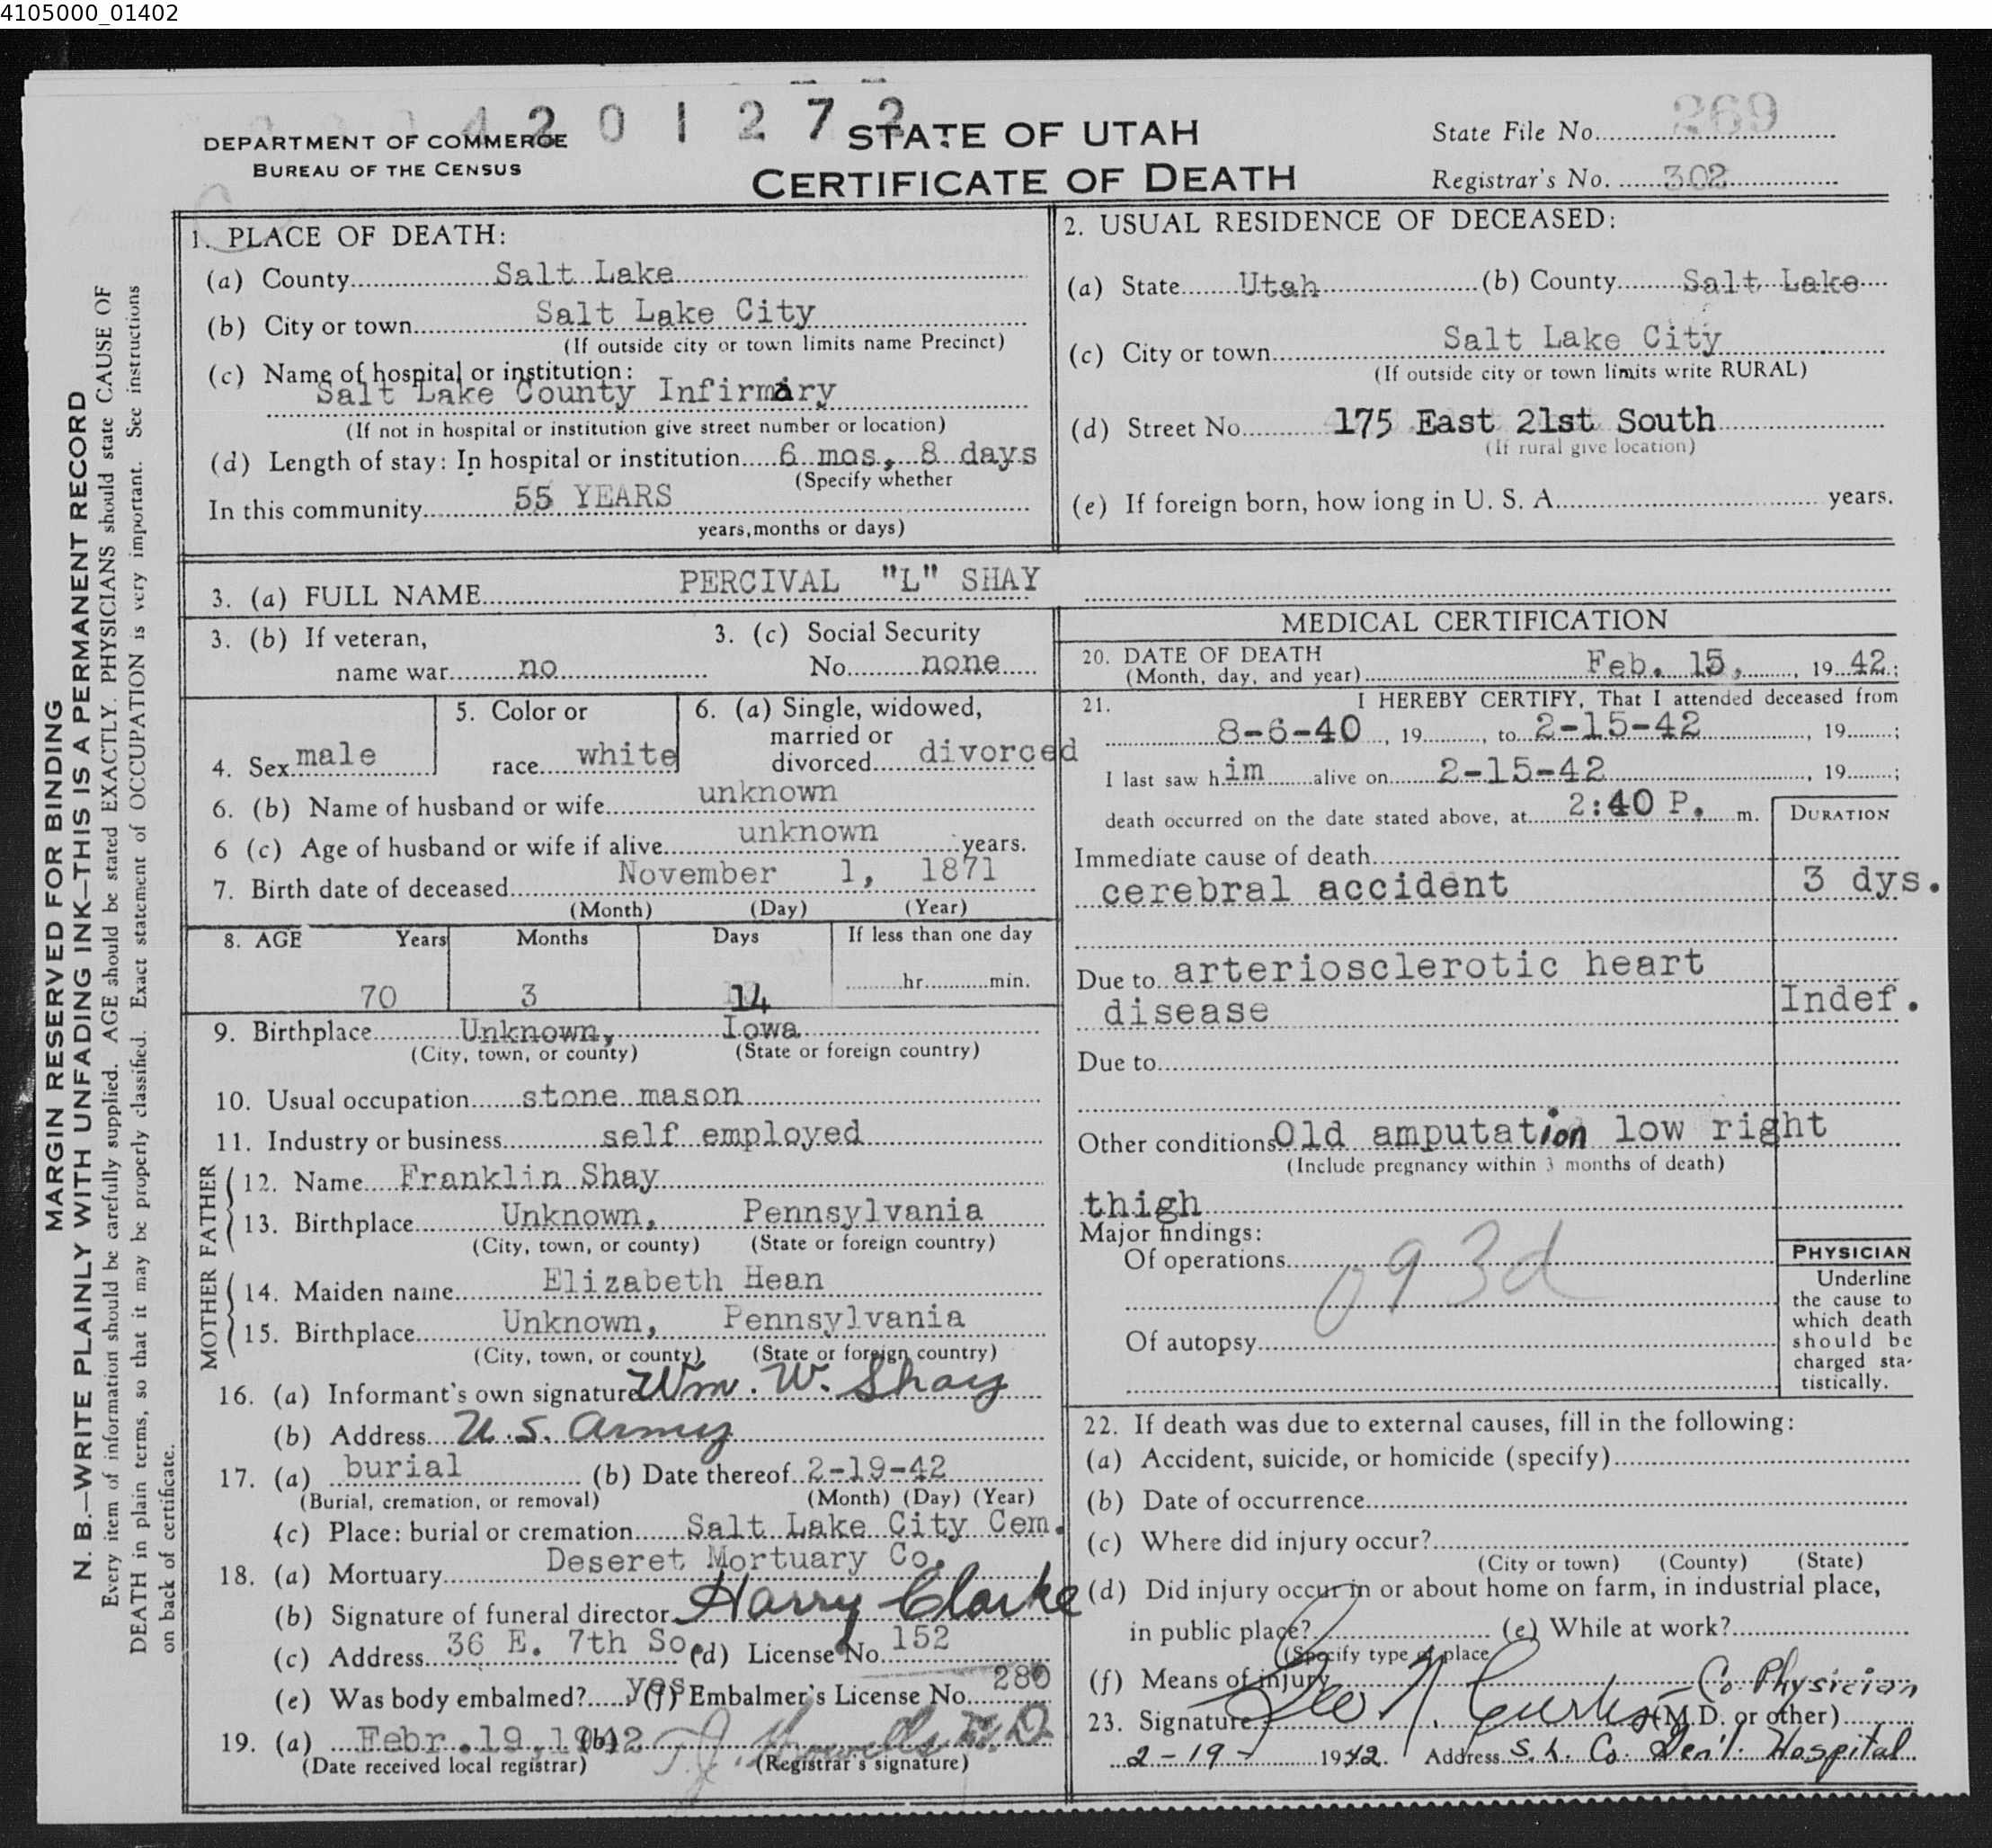 4105000_01402
4 2 0 1 2 7 2
DEPARTMENT OF COMMERCE
BUREAU OF THE CENSUS
STATE OF UTAH
CERTIFICATE OF DEATH
State File No. 269
Registrar's No. 302
MARGIN RESERVED FOR BINDING
N. B.—WRITE PLAINLY WITH UNFADING INK—THIS IS A PERMANENT RECORD
Every item of information should be carefully supplied. AGE should be stated EXACTLY. PHYSICIANS should state CAUSE OF
DEATH in plain terms, so that it may be properly classified. Exact statement of OCCUPATION is very important. See instructions
on back of certificate.
1. PLACE OF DEATH:
(a) County Salt Lake
(b) City or town Salt Lake City
(If outside city or town limits name Precinct)
(c) Name of hospital or institution:
Salt Lake County Infirmary
(If not in hospital or institution give street number or location)
(d) Length of stay: In hospital or institution 6 mos, 8 days
(Specify whether
In this community 55 YEARS
years, months or days)
2. USUAL RESIDENCE OF DECEASED:
(a) State Utah (b) County Salt Lake
(c) City or town Salt Lake City
(If outside city or town limits write RURAL)
(d) Street No. 175 East 21st South
(If rural give location)
(e) If foreign born, how long in U. S. A. years.
3. (a) FULL NAME PERCIVAL "L" SHAY
3. (b) If veteran,
name war no
3. (c) Social Security
No. none
4. Sex male
5. Color or
race white
6. (a) Single, widowed,
married or
divorced divorced
6. (b) Name of husband or wife unknown
6 (c) Age of husband or wife if alive unknown years.
7. Birth date of deceased November 1, 1871
(Month) (Day) (Year)
8. AGE Years Months Days If less than one day
70 3 14 hr. min.
9. Birthplace Unknown, Iowa
(City, town, or county) (State or foreign country)
10. Usual occupation stone mason
11. Industry or business self employed
FATHER
12. Name Franklin Shay
13. Birthplace Unknown, Pennsylvania
(City, town, or county) (State or foreign country)
MOTHER
14. Maiden name Elizabeth Hean
15. Birthplace Unknown, Pennsylvania
(City, town, or county) (State or foreign country)
16. (a) Informant's own signature Wm. W. Shay
(b) Address U.S. Army
17. (a) burial (b) Date thereof 2-19-42
(Burial, cremation, or removal) (Month) (Day) (Year)
(c) Place: burial or cremation Salt Lake City Cem.
18. (a) Mortuary Deseret Mortuary Co.
(b) Signature of funeral director Harry Clarke
(c) Address 36 E. 7th So. (d) License No. 152
(e) Was body embalmed? yes (f) Embalmer's License No. 280
19. (a) Febr. 19, 1942 (b) T.J. Howells M.D.
(Date received local registrar) (Registrar's signature)
MEDICAL CERTIFICATION
20. DATE OF DEATH
(Month, day, and year) Feb. 15, 19 42;
21. I HEREBY CERTIFY, That I attended deceased from
8-6-40, 19 , to 2-15-42, 19 ;
I last saw h im alive on 2-15-42, 19 ;
death occurred on the date stated above, at 2:40 P. m.
DURATION
Immediate cause of death
cerebral accident 3 dys.
Due to arteriosclerotic heart
disease Indef.
Due to
Other conditions Old amputation low right
(Include pregnancy within 3 months of death)
thigh
Major findings:
Of operations
093d
Of autopsy
PHYSICIAN
Underline
the cause to
which death
should be
charged sta-
tistically.
22. If death was due to external causes, fill in the following:
(a) Accident, suicide, or homicide (specify)
(b) Date of occurrence
(c) Where did injury occur?
(City or town) (County) (State)
(d) Did injury occur in or about home on farm, in industrial place,
in public place? (e) While at work?
(Specify type of place
(f) Means of injury
23. Signature Geo N Curtis - Co. Physician
(M.D. or other)
2-19- 1942. Address S. L. Co. Gen'l. Hospital